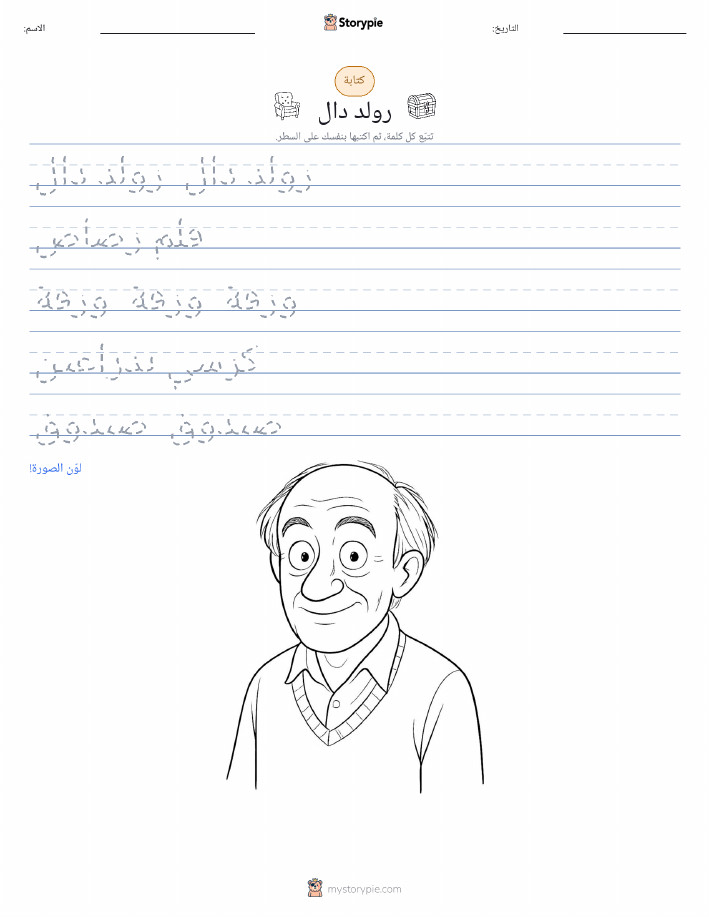 الاسم:
Storypie
التاريخ:
كتابة
رولد دال
تتبّع كل كلمة، ثم اكتبها بنفسك على السطر.
رولد دال رولد دال
قلم رصاص
ورقة ورقة ورقة
كرسي بذراعين
صندوق صندوق
لوّن الصورة!
mystorypie.com